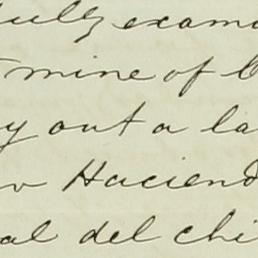 fully exam
mine of
y out a la
Haciend
al del chi